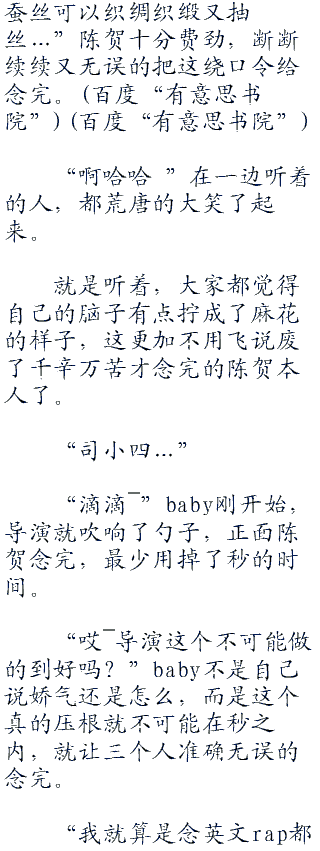 蚕丝可以织绸织缎又抽
丝…”陈贺十分费劲，断断
续续又无误的把这绕口令给
念完。(百度“有意思书
院”)(百度“有意思书院”)
“啊哈哈 ”在一边听着
的人，都荒唐的大笑了起
来。
就是听着，大家都觉得
自己的脑子有点拧成了麻花
的样子，这更加不用飞说废
了千辛万苦才念完的陈贺本
人了。
“司小四…”
“滴滴¯”baby刚开始，
导演就吹响了勺子，正面陈
贺念完，最少用掉了秒的时
间。
“哎¯导演这个不可能做
的到好吗？”baby不是自己
说娇气还是怎么，而是这个
真的压根就不可能在秒之
内，就让三个人准确无误的
念完。
“我就算是念英文rap都